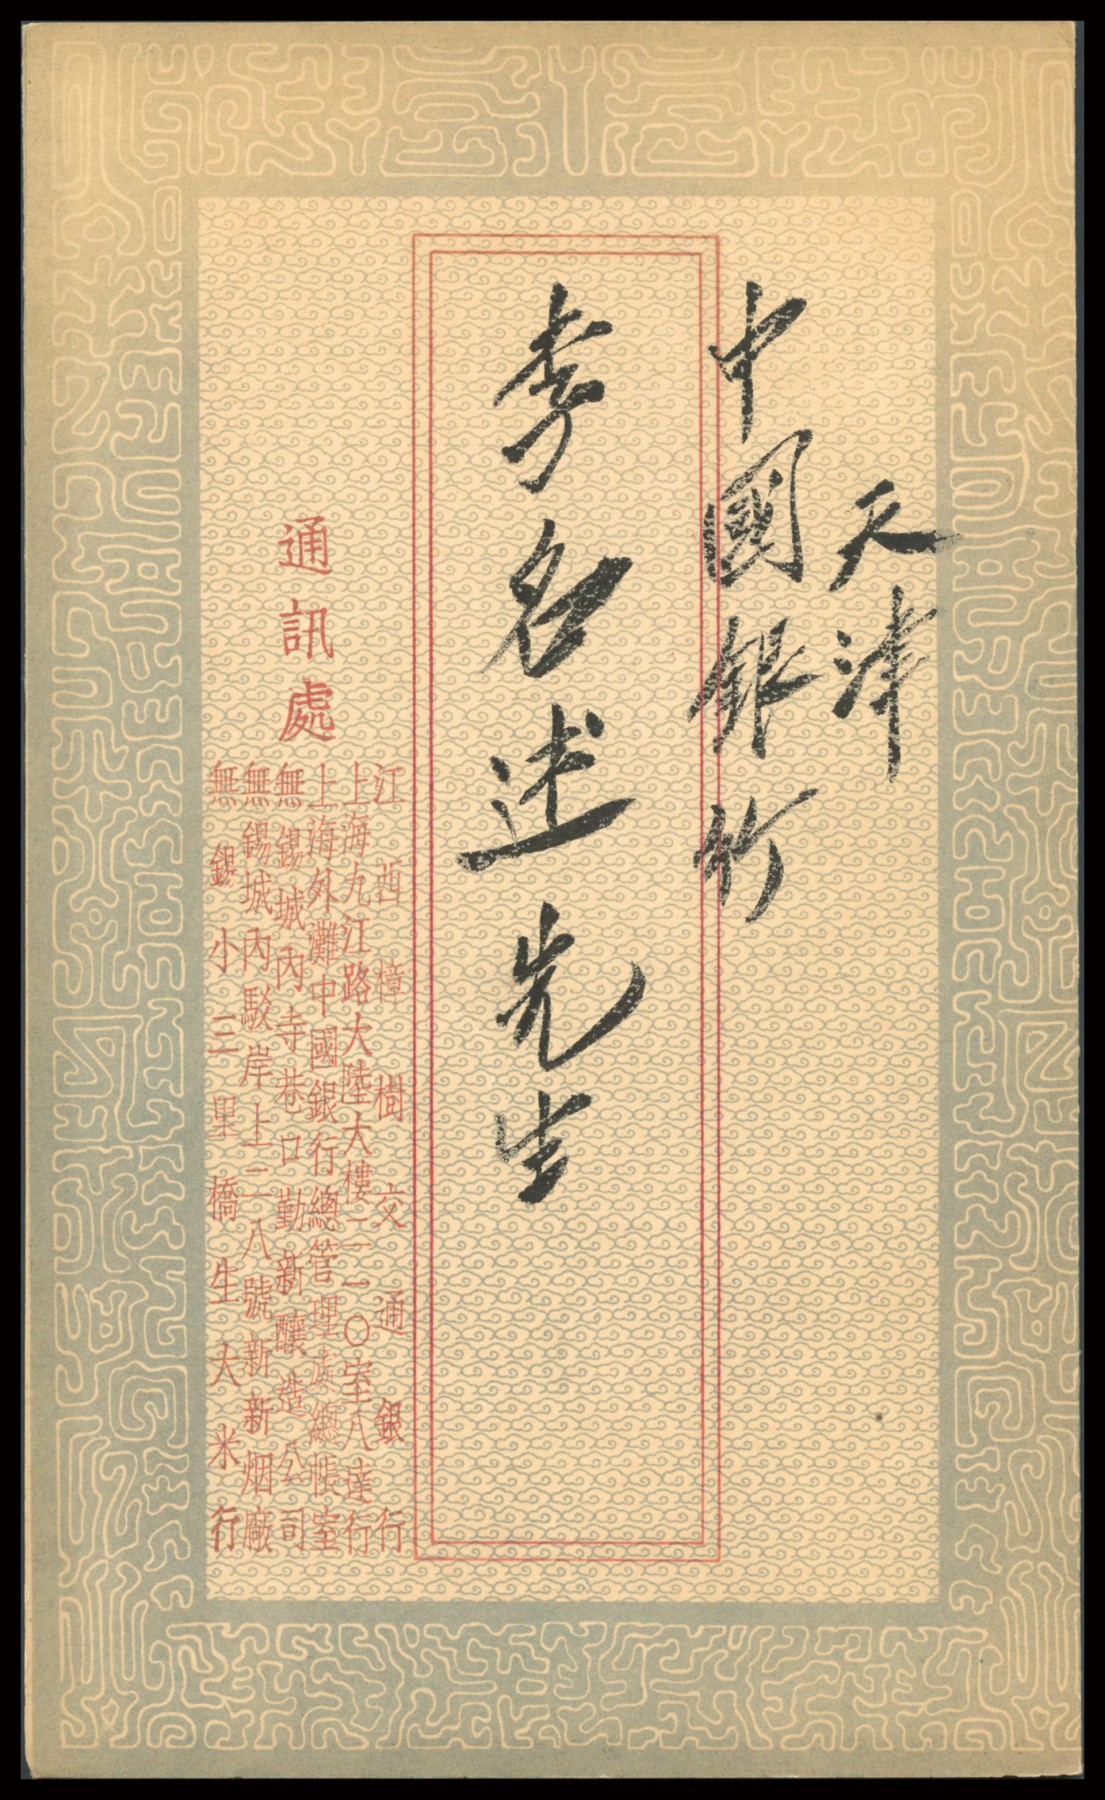 天津
中國銀行
李名述先生
通訊處
江西樟樹交通銀行
上海九江路大陸大樓二一〇室八達行
上海外灘中國銀行總管理處總帳室
無錫城內寺巷口勤新釀造公司
無錫城內駁岸上二八號新新烟廠
無錫小三里橋生大米行